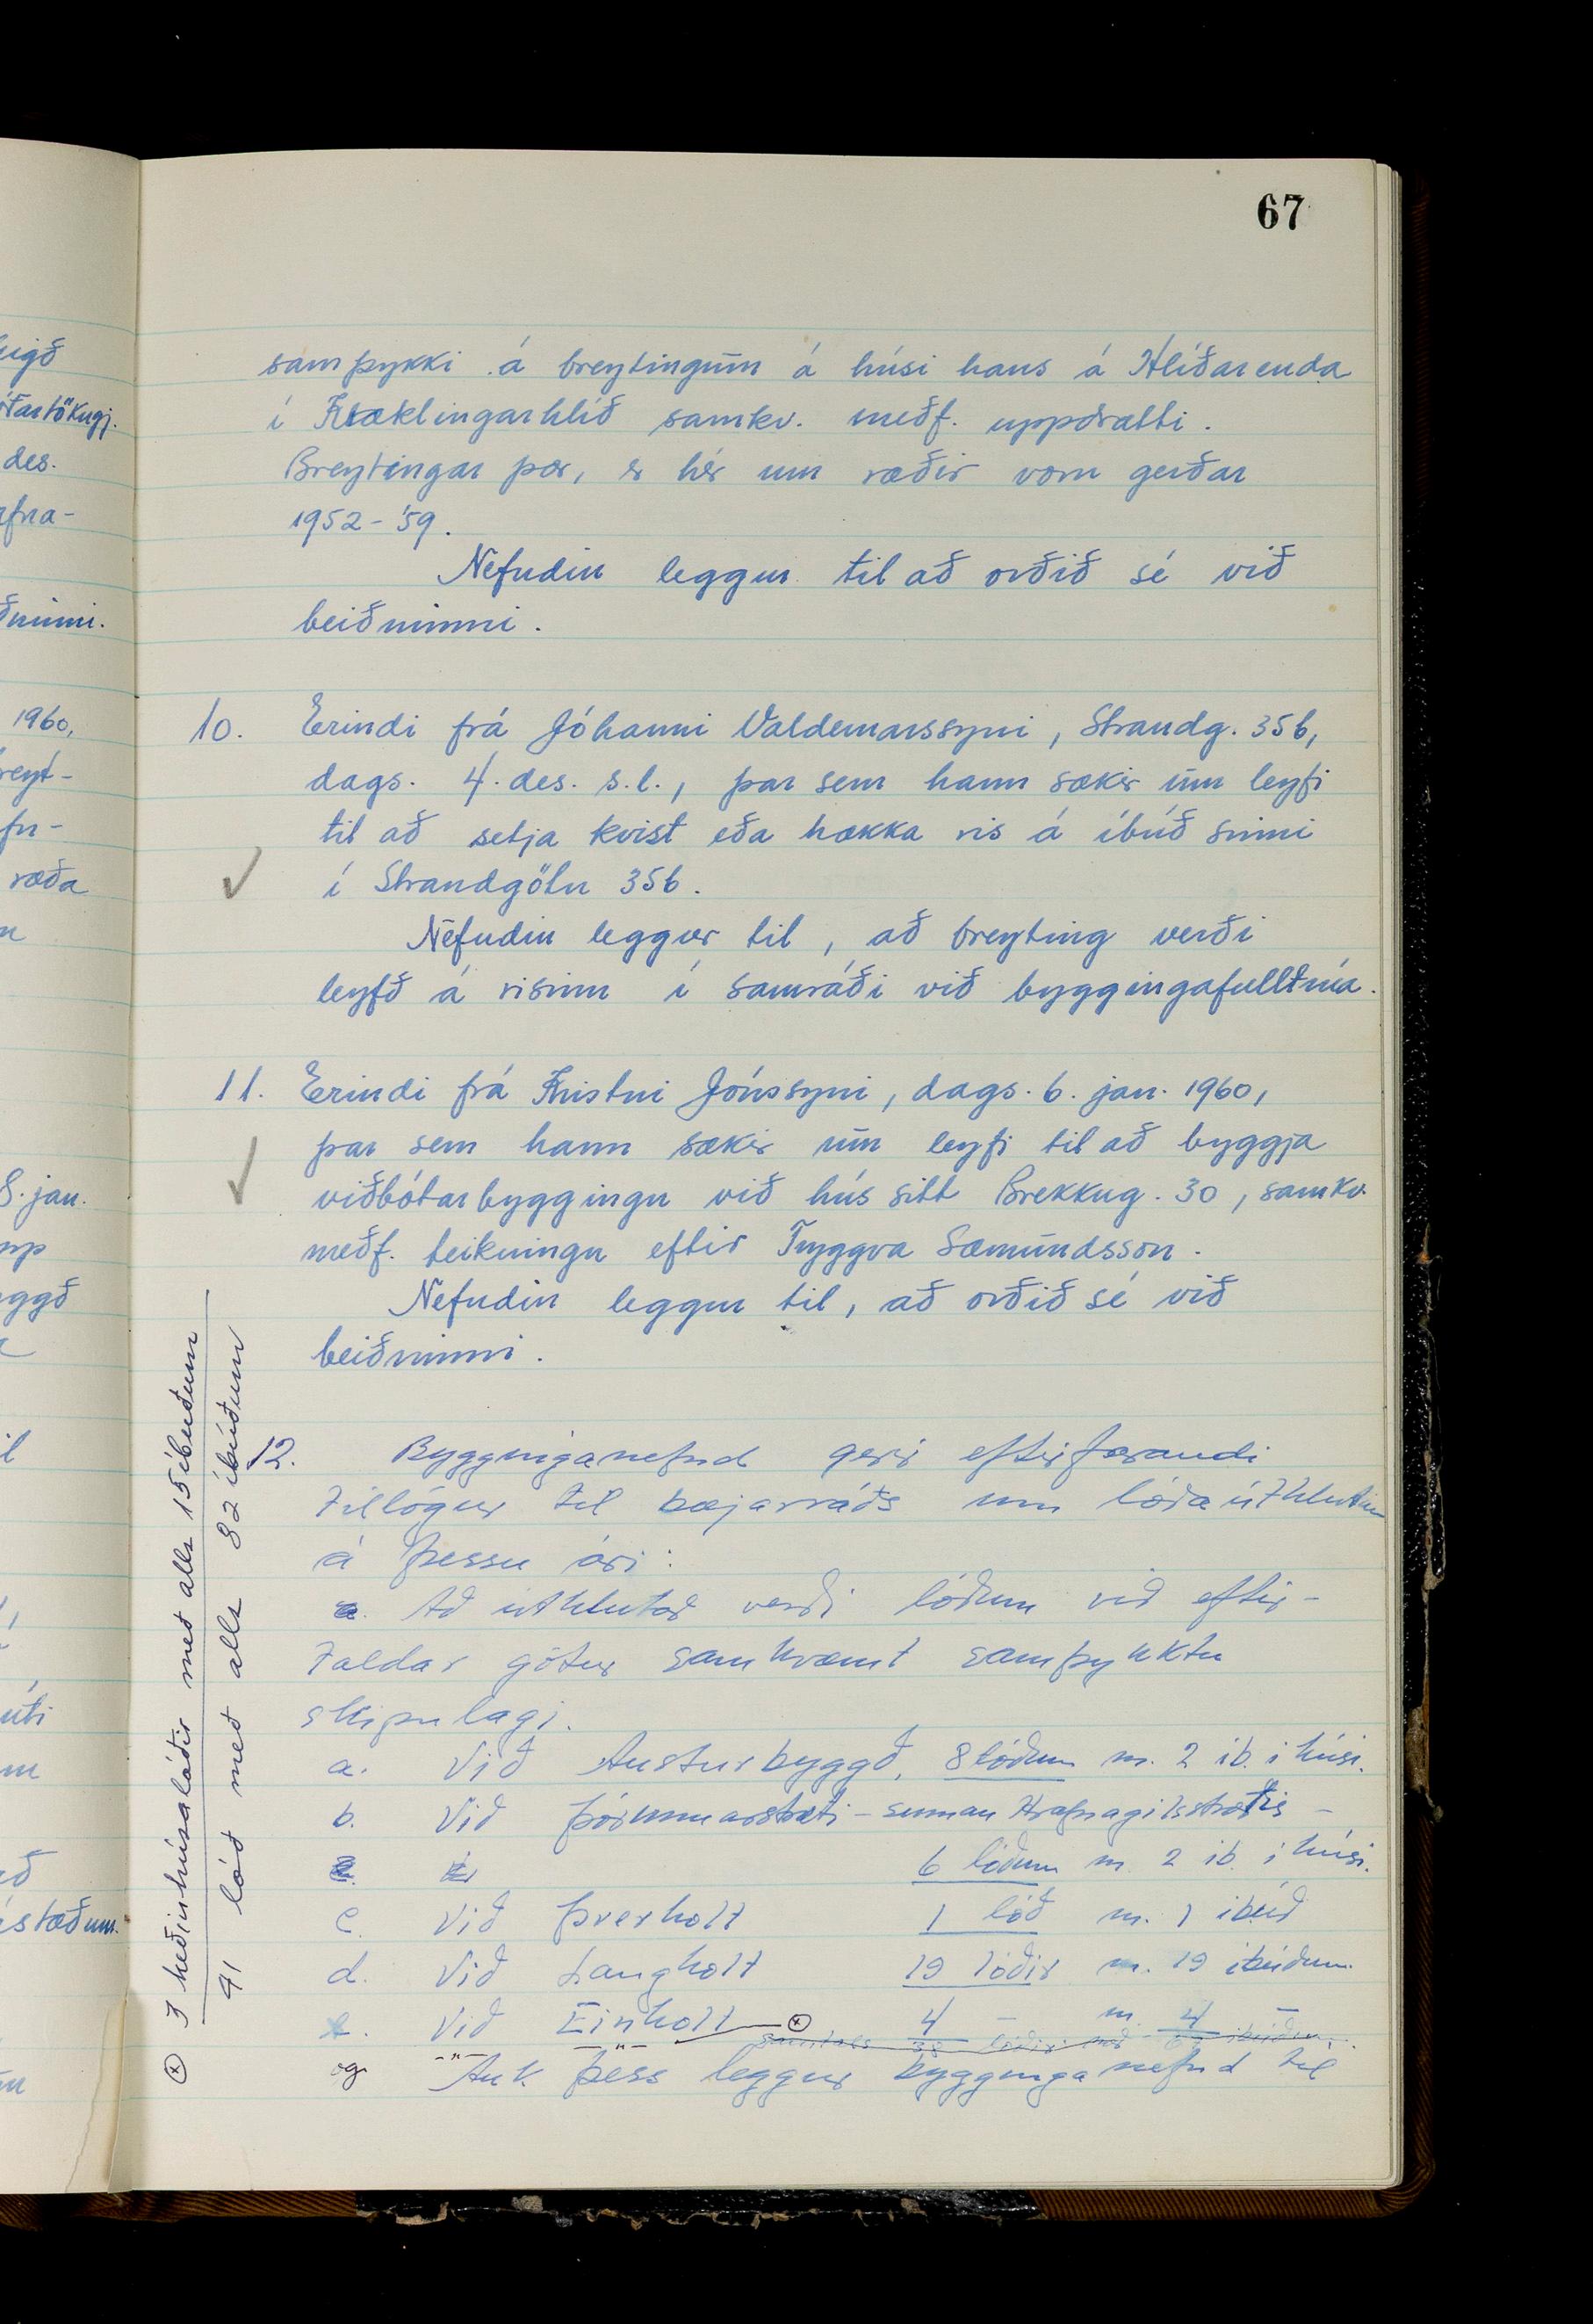 67
samþykki á breytingum á húsi hans á Hlíðarenda
í Kræklingarhlíð samkv. meðf. uppdrætti.
Breytingar þær, er hér um ræðir voru gerðar
1952-'59.
Nefndin leggur til að orðið sé við
beiðninni.
10. Erindi frá Jóhanni Valdemarssyni, Strandg. 35b,
dags. 4. des. s.l., þar sem hann sækir um leyfi
til að setja kvist eða hækka ris á íbúð sinni
í Strandgötu 35b.
Nefndin leggur til, að breyting verði
leyfð á risinu í samráði við byggingafulltrúa.
11. Erindi frá Kristni Jónssyni, dags. 6. jan. 1960,
þar sem hann sækir um leyfi til að byggja
viðbótarbyggingu við hús sitt Brekkug. 30, samkv.
meðf. teikningu eftir Tryggva Sæmundsson.
Nefndin leggur til, að orðið sé við
beiðninni.
12. Bygginganefnd gerir eftirfarandi
tillögur til bæjarráðs um lóðaúthlutun
á þessu ári:
Að úthlutað verði lóðum við eftir-
taldar götur samkvæmt samþykktu
skipulagi.
a. Við Austurbyggð, 8 lóðum m. 2 íb. í húsi.
b. Við Þórunnarstræti - sunnan Hrafnagilsstrætis -
6 lóðum m. 2 íb. í húsi.
c. Við Þverholt 1 lóð m. 1 íbúð
d. Við Langholt 19 lóðir m. 19 íbúðum.
e. Við Einholt ⊗ 4 - m. 4 -
samtals 38 lóðir með íbúðum.
og -"- -"-
Auk þess leggur bygginganefnd til
⊗ 3 keðjuhúsalóðir með alls 15 íbúðum
41 lóð með alls 82 íbúðum
eigð
réttartökugj.
des.
afna-
ðninni.
1960,
breyt-
fn-
ræða
8. jan.
upp
yggð
il
úti
að
ástæðum.